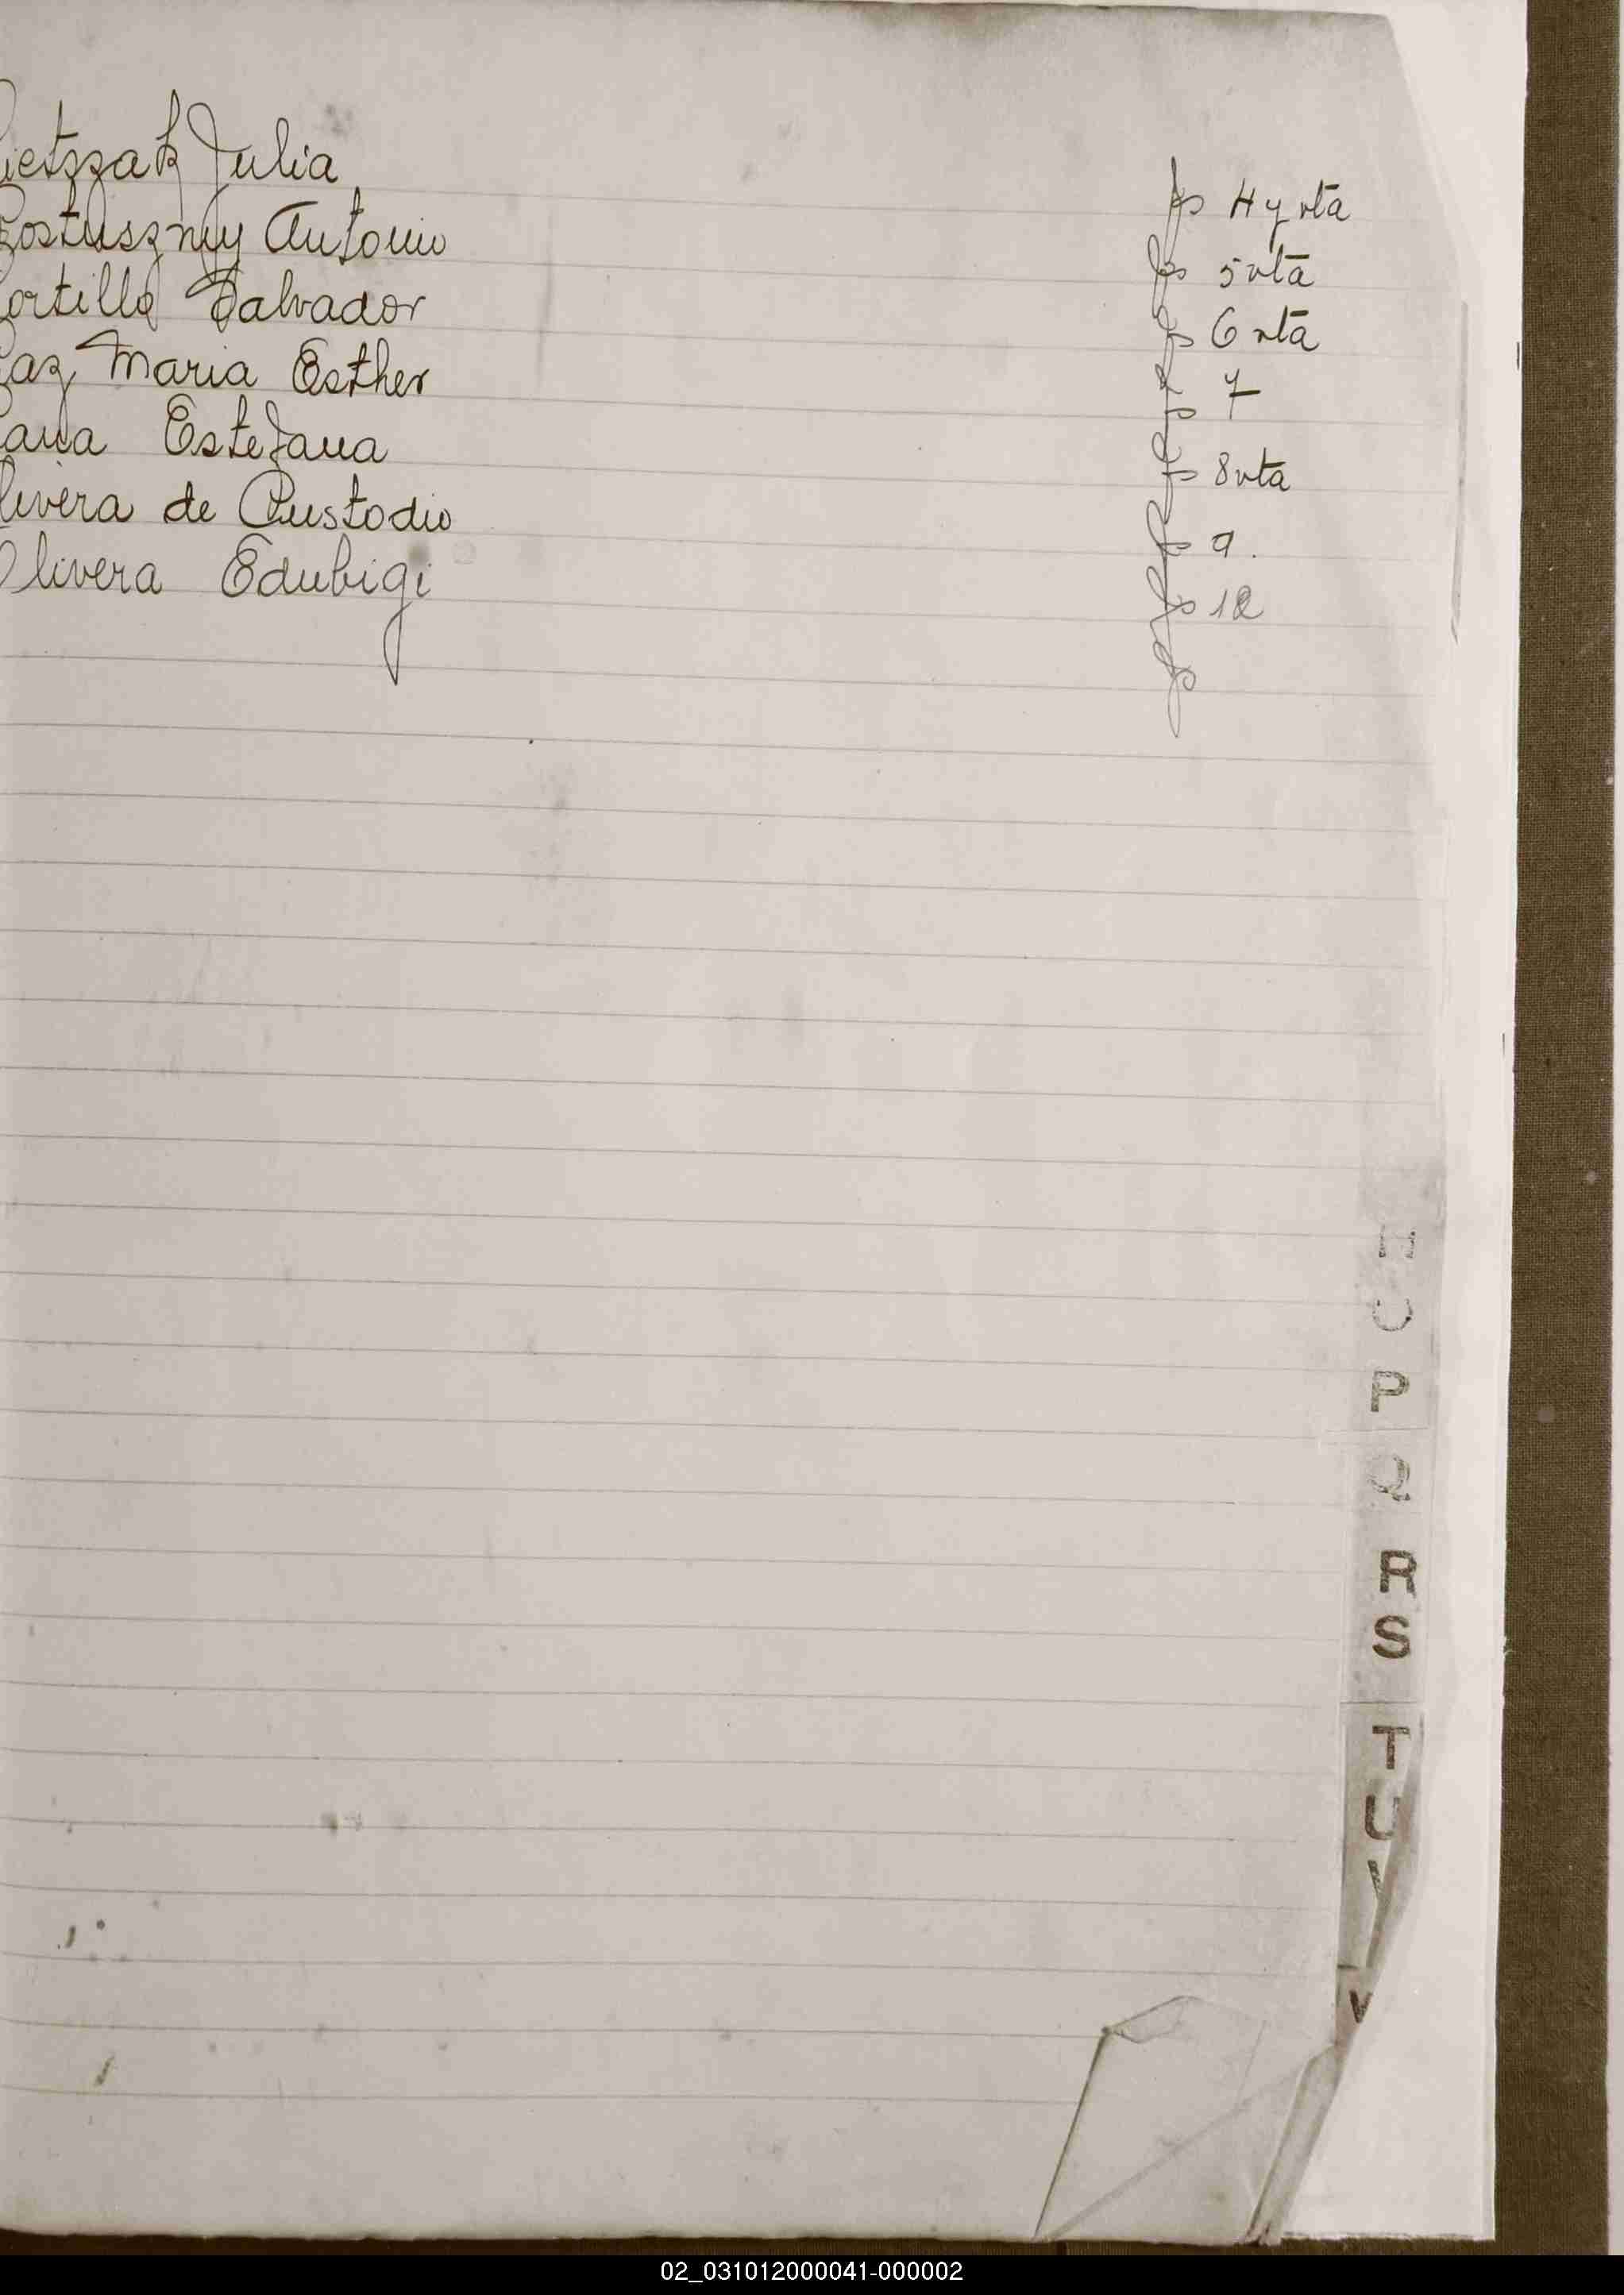 ietszak Julia fs 4 y vta
Kostuszny Antonio fs 5 vta
ortillo Salvador fs 6 vta
az Maria Esther fs 7
Estefana fs 8 vta
livera de Custodio fs 9.
Olivera Edubigi fs 12
fs
N
O
P
Q
R
S
T
U
V
02_031012000041-000002